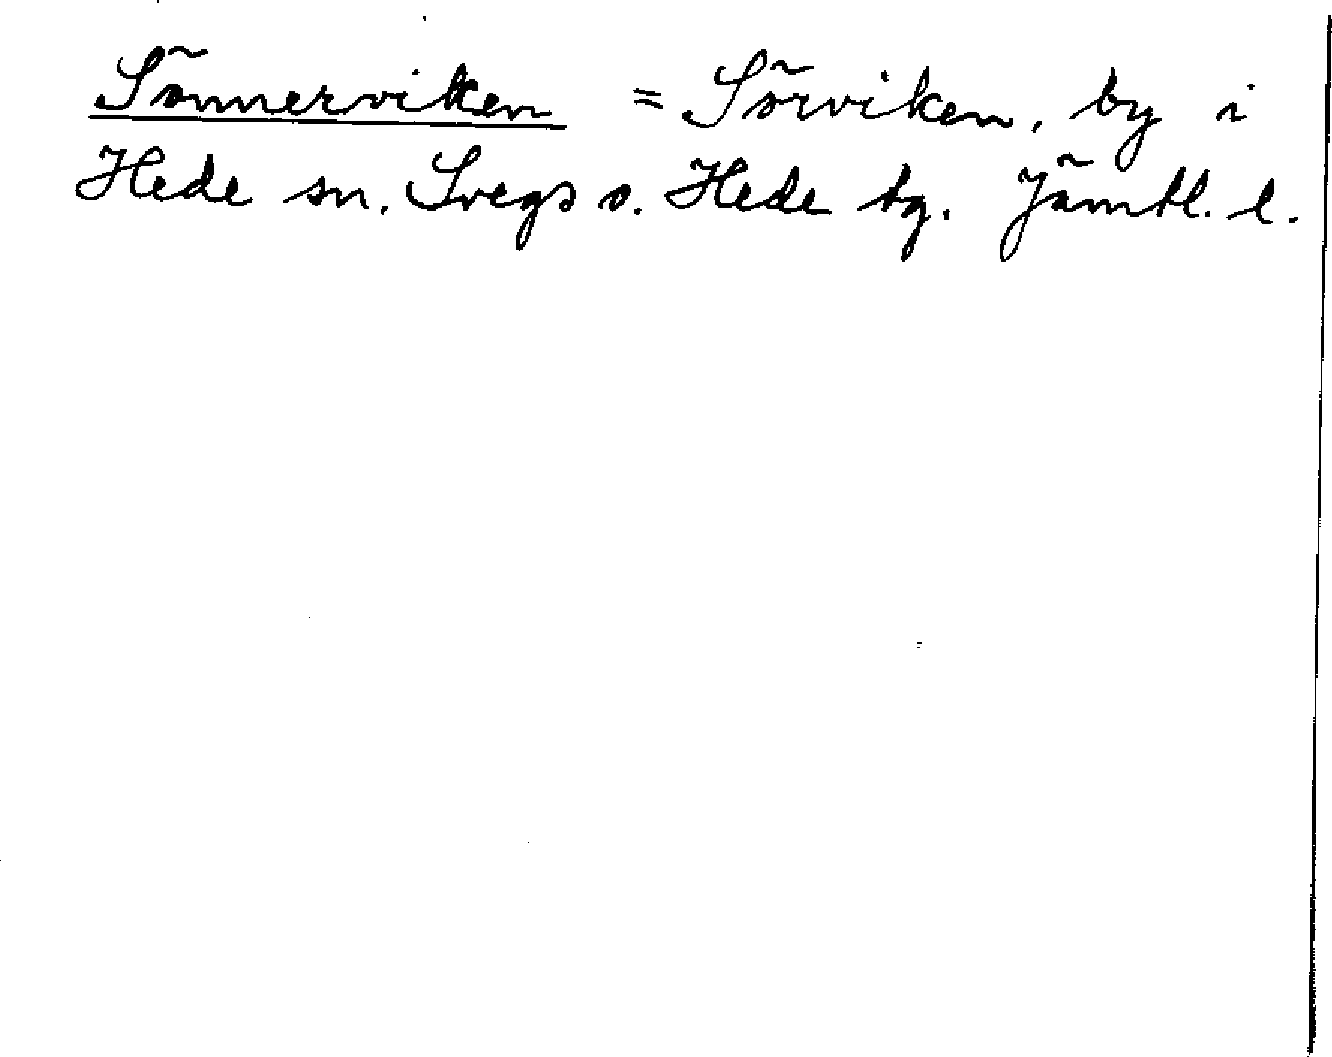 Sönnerviken = Sörviken, by i
Hede sn. Svegs o. Hede tg. Jämtl. l.